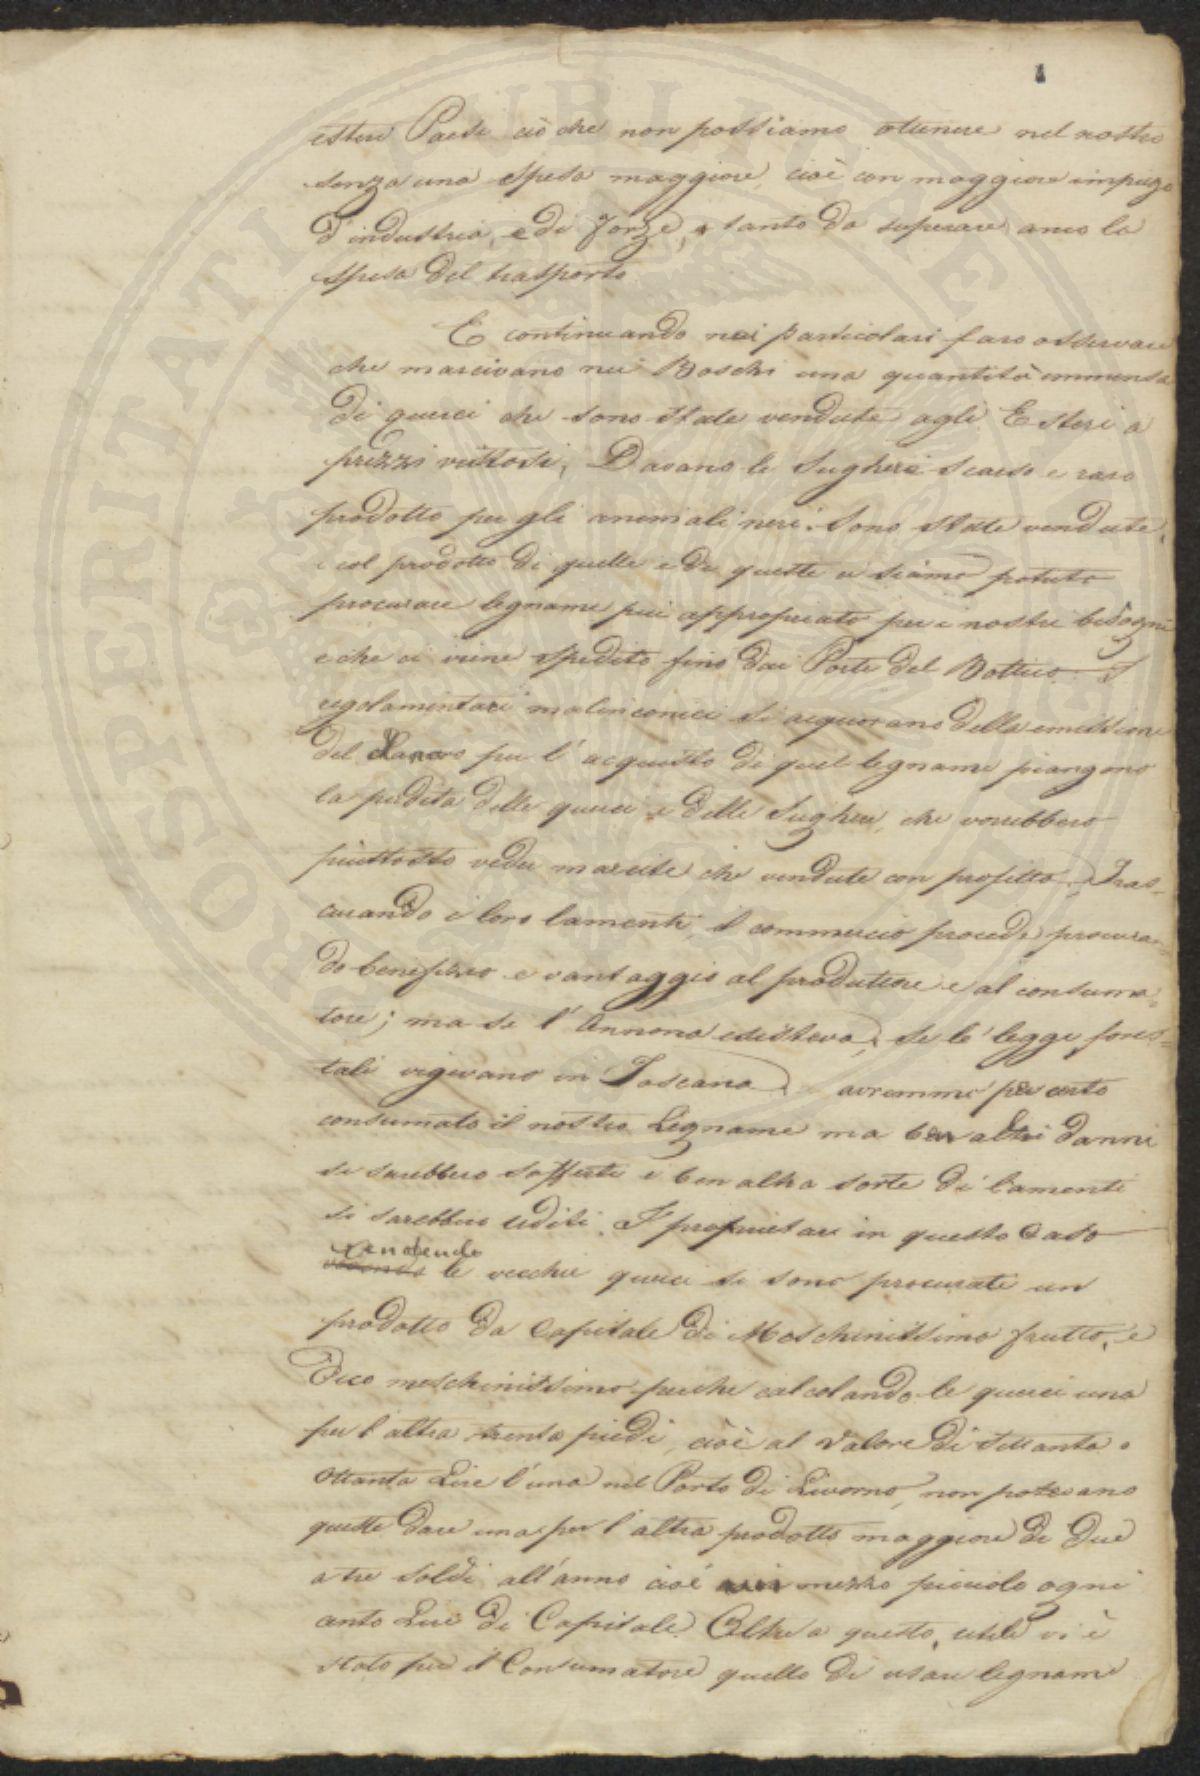 esteri Paesi ciò che non possiamo ottenere nel nostro
senza una spesa maggiore, cioè con maggiore impiego
d'industria, e di forze, e tanto da superare anco la
spesa del trasporto
E continuando nei particolari farò osservare
che marcivano nei Boschi una quantità immensa
di querci che sono state vendute agli Esteri a
prezzi vistosi, Davano le Sughere scarso e raro
prodotto per gli animali neri. Sono state vendute,
e col prodotto di quelle e di queste ci siamo potuto
procurare legname più appropriato per i nostri bisogni
e che ci viene spedito fino dai Porti del Baltico. I
regolamentari malinconici si accorano della emissione
del danaro per l'acquisto di quel legname piangono
la perdita delle querci e delle Sughere, che vorrebbero
piuttosto veder marcite che vendute con profitto. Tras-
curando i loro lamenti, il commercio procede procuran-
do benefizio e vantaggio al produttore e al consuma-
tore; ma se l'Annona esisteva, se le leggi fores-
tali vigevano in Toscana, avremmo per certo
consumato il nostro Legname ma ben altri danni
si sarebbero sofferti e ben altra sorte di lamenti
si sarebbero uditi. I proprietari in questo caso
vendendo
le vecchie querci si sono procurati un
prodotto da Capitale di Meschinissimo frutto, e
dico meschinissimo perché calcolando le querci una
per l'altra trenta piedi, cioè al valore di settanta o
ottanta Lire l'una nel Porto di Livorno, non potevano
queste dare una per l'altra prodotto maggiore di due
a tre soldi all'anno cioè un mezzo piccolo ogni
cento Lire di Capitale. Oltre a questo, utile vi è
stato per il Consumatore quello di usare legname
PROSPERITATI PUBLICAE